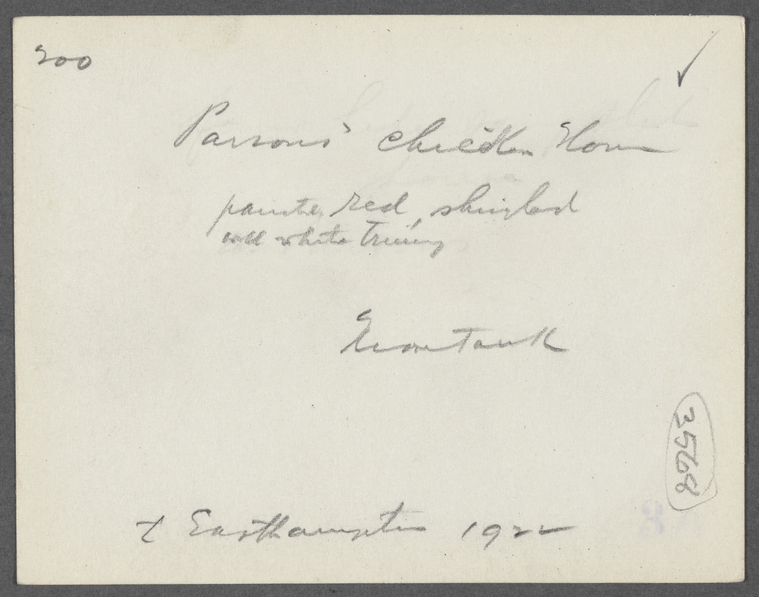 200
Parsons' chicken House
painted red, shingled
with white trim
Montauk
3568
Easthampton 1922